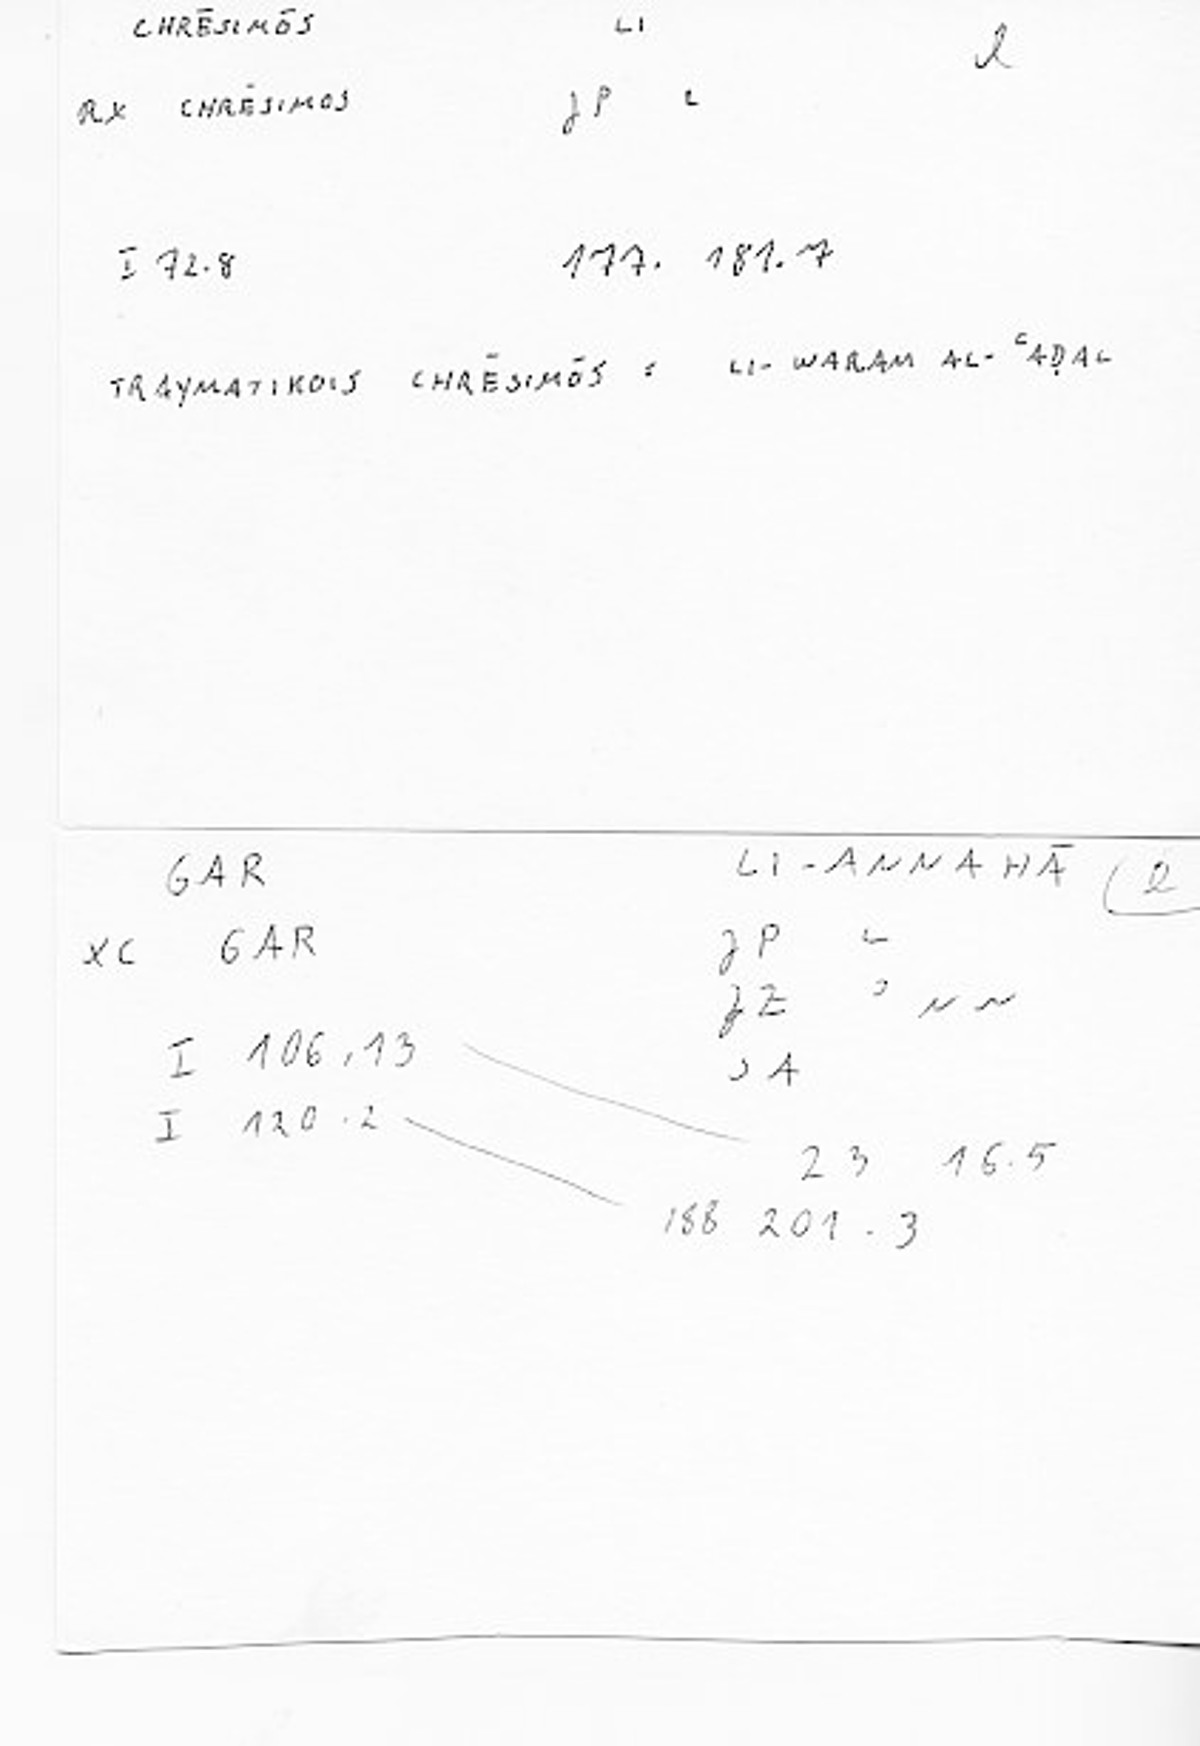 CHRĒSIMŌS LI l
RX CHRĒSIMOS JP L
I 72.8 177. 181.7
TRAYMATIKOIS CHRĒSIMŌS : LI-WARAM AL-ʿAḌAL
GAR LI-ANNAHĀ l
XC GAR JP L
JZ ʾNN
I 106,13 ɔA
I 120.2
23 16.5
188 201.3